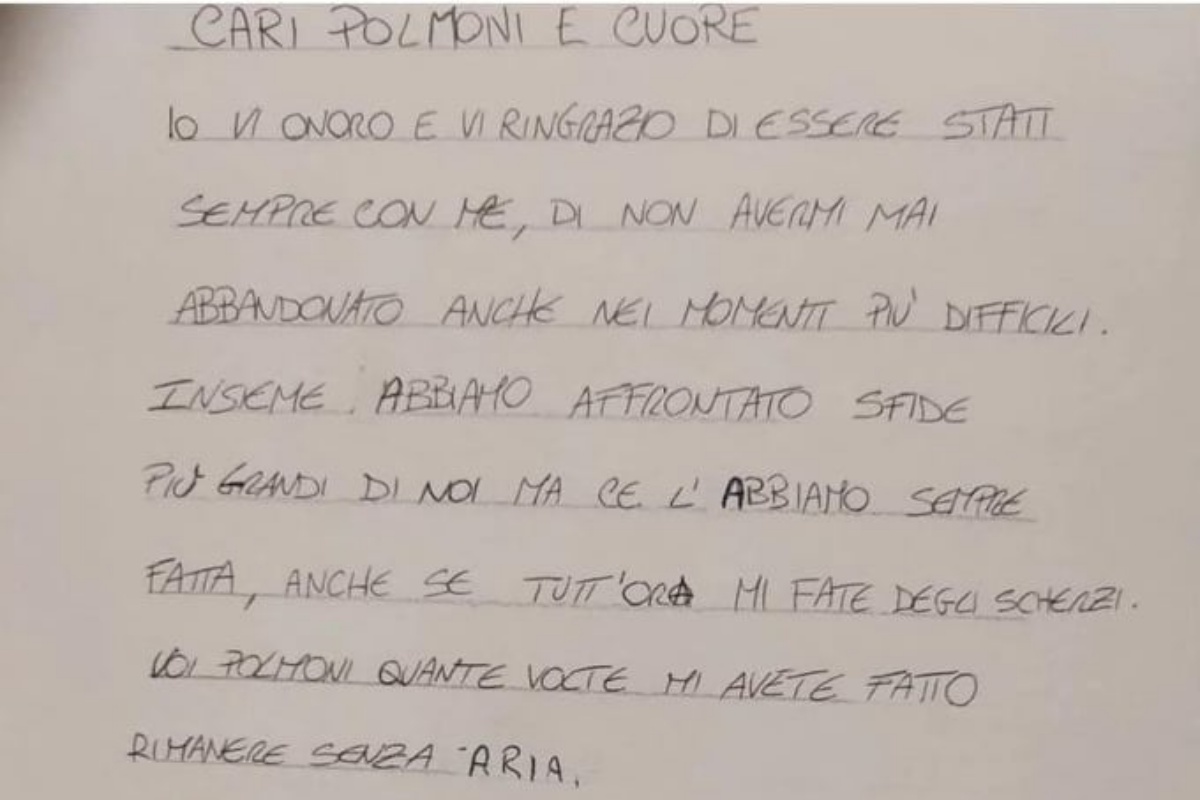 CARI POLMONI E CUORE
Io VI ONORO E VI RINGRAZIO DI ESSERE STATI
SEMPRE CON ME, DI NON AVERMI MAI
ABBANDONATO ANCHE NEI MOMENTI PIÙ DIFFICILI.
INSIEME ABBIAMO AFFRONTATO SFIDE
PIÙ GRANDI DI NOI MA CE L'ABBIAMO SEMPRE
FATTA, ANCHE SE TUTT'ORA MI FATE DEGLI SCHERZI.
VOI POLMONI QUANTE VOLTE MI AVETE FATTO
RIMANERE SENZA ARIA.